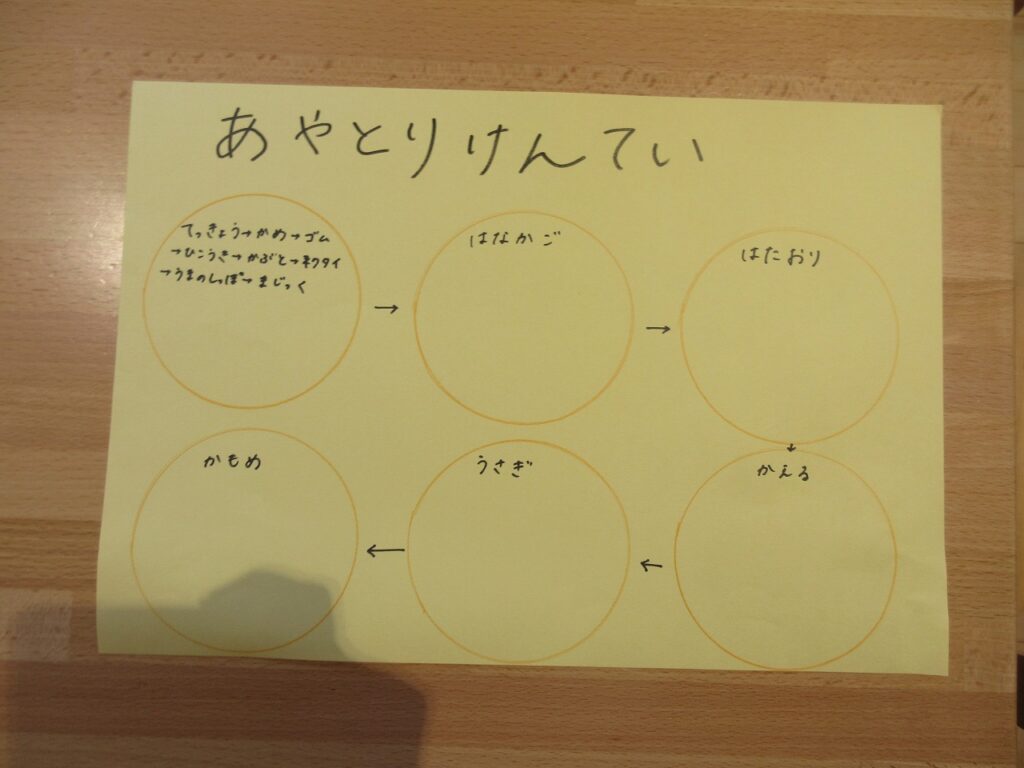 あやとりけんてい
てっきょう→かめ→ゴム
→ひこうき→かぶと→ネクタイ
→うまのしっぽ→まじっく
→
はなかご
→
はたおり
↓
かえる
←
うさぎ
←
かもめ